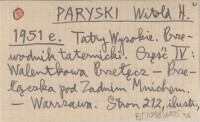 PARYSKI Witold H.
1951 e. Tatry Wysokie. Prze-
wodnik taternicki. Część IV:
Walentkowa Przełęcz – Prze-
łączka pod Zadnim Mnichem.
– Warszawa. Stron 212, ilustr.